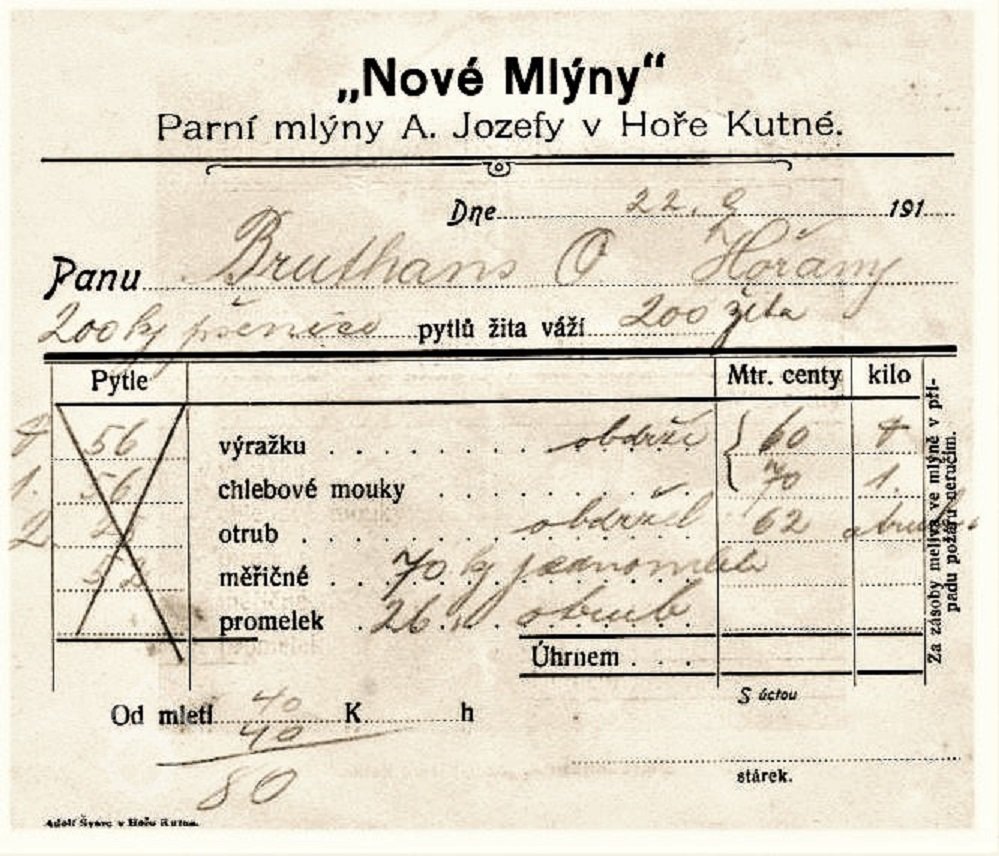 „Nové Mlýny“
Parní mlýny A. Jozefy v Hoře Kutné.
Dne 22. 9 191
Panu Bruthans O Hořany
200 kg pšenice pytlů žita váží 200 žita
Pytle Mtr. centy kilo
56 výražku obdrží 60
1. 56 chlebové mouky 70 1.
2 otrub obdržel 62
52 měřičné 70 kg
promelek 26 otrub
Úhrnem
Za zásoby meliva ve mlýně v pří-
padu požáru neručím.
S úctou
Od mletí 40 K h
40
80
stárek.
Adolf Švarc v Hoře Kutné.